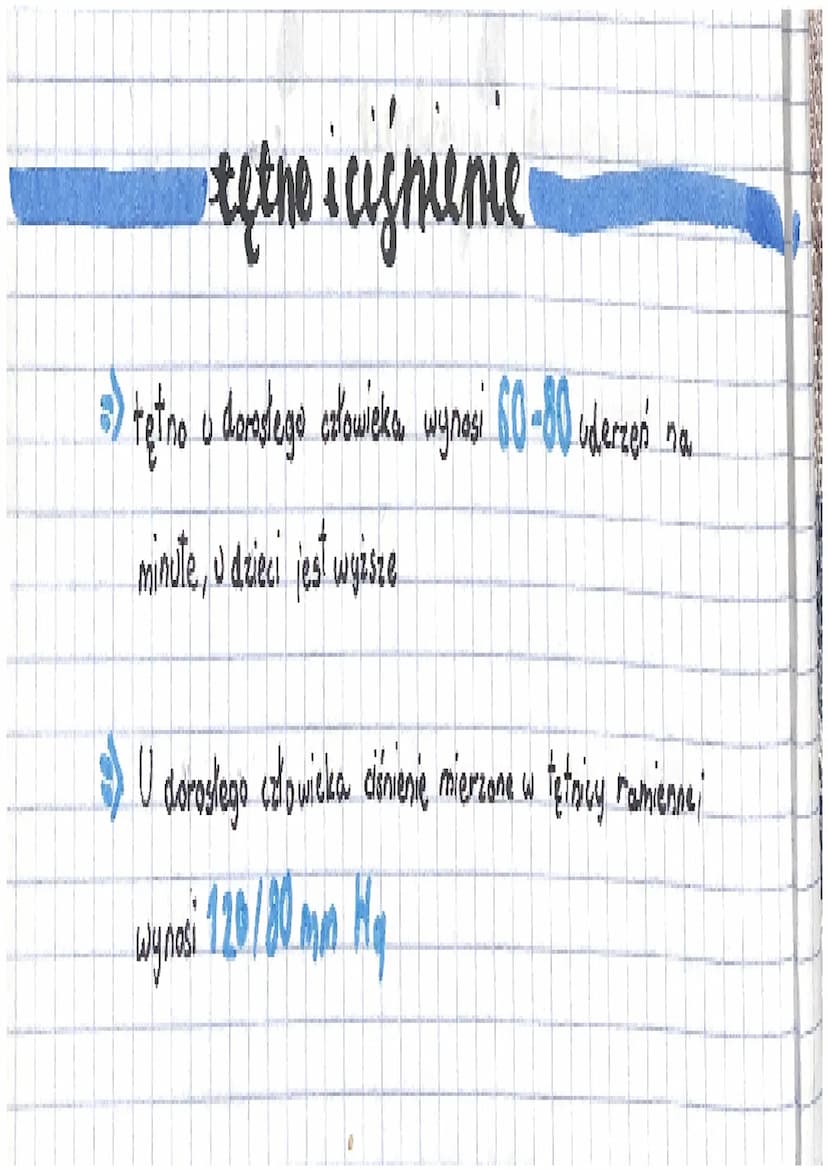 tętno i ciśnienie
=> tętno u dorosłego człowieka wynosi 60-80 uderzeń na
minutę, u dzieci jest wyższe
=> U dorosłego człowieka ciśnienie mierzone w tętnicy ramiennej
wynosi 120/80 mm Hg